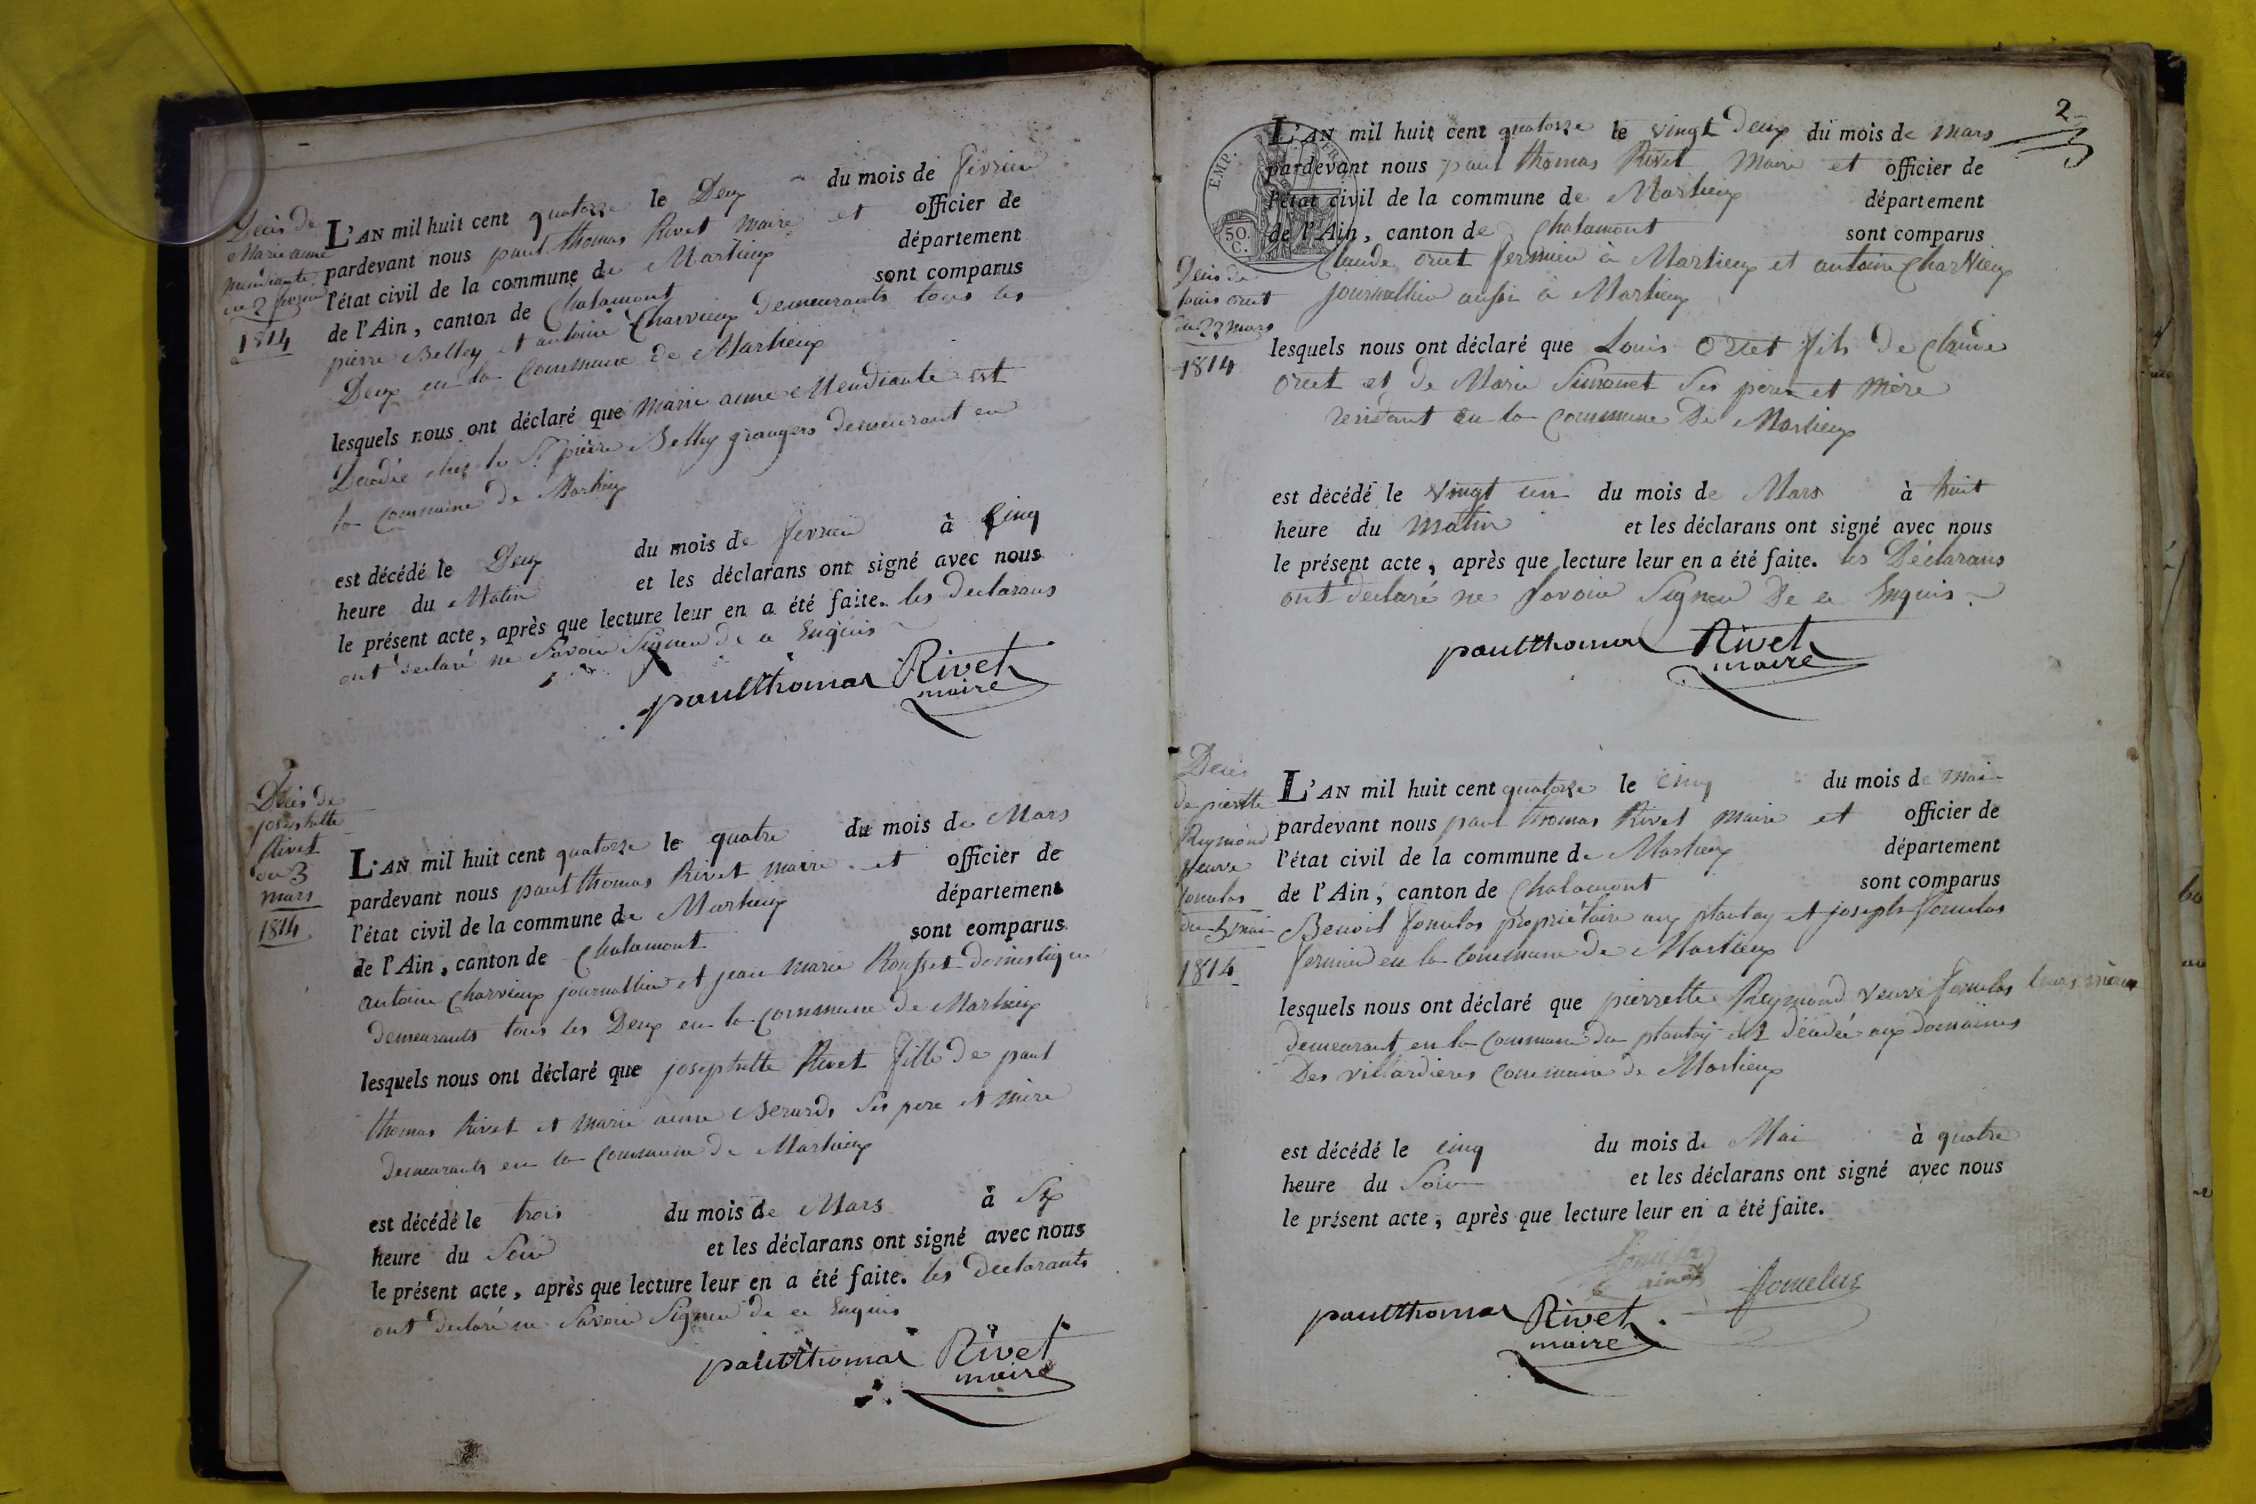 Décis de
Marie anne
mendiante
du 2 fevrier
1814
L'AN mil huit cent quatorze le Deux du mois de fevrier
pardevant nous paul thomas Rivet maire et officier de
l'état civil de la commune de Marlieux département
de l'Ain, canton de Chalamont sont comparus
pierre Belley et antoine Charvieux Demeurants tous les
Deux en la Commune de Marlieux
lesquels nous ont déclaré que Marie anne Mendiante est
Décédée chez le Sr pierre Belley grangers demeurant en
la commune de Marlieux
est décédé le Deux du mois de fevrier à Cinq
heure du Matin et les déclarans ont signé avec nous
le présent acte, après que lecture leur en a été faite. les declarans
ont déclaré ne Savoir Signer de ce Enquis
paulthomas Rivet
maire
Décis de
josephette
Rivet
du 3
mars
1814
L'AN mil huit cent quatorze le quatre du mois de Mars
pardevant nous paul thomas Rivet maire et officier de
l'état civil de la commune de Marlieux département
de l'Ain, canton de Chalamont sont comparus
antoine Charvieux journallier et jean marie Rousset domestique
demeurants tous les Deux en la commune de Marlieux
lesquels nous ont déclaré que josephette Rivet fille de paul
thomas Rivet et marie anne Berard Ses pere et mère
demeurants en la commune de Marlieux
est décédé le trois du mois de Mars à Six
heure du Soir et les déclarans ont signé avec nous
le présent acte, après que lecture leur en a été faite. les declarants
ont declaré ne Savoir Signer de ce Enquis
paulthomas Rivet
maire
2
EMP. FR.
50.
C.
Décis de
Louis oret
du 22 mars
1814
L'AN mil huit cent quatorze le vingt Deux du mois de mars
pardevant nous paul thomas Rivet Maire et officier de
l'état civil de la commune de Marlieux département
de l'Ain, canton de Chalamont sont comparus
Claude oret fermier à Marlieux et antoine Charvieux
journallier aussi à Marlieux
lesquels nous ont déclaré que Louis oret fils de Claude
oret et de Marie Simonet Ses père et Mère
residant en la commune De Marlieux
est décédé le vingt un du mois de Mars à huit
heure du matin et les déclarans ont signé avec nous
le présent acte, après que lecture leur en a été faite. les Déclarans
ont declaré ne Savoir Signer De ce Enquis
paulthomas Rivet
maire
Décis
de pierette
Reymond
veuve
fomelas
du 5 mai
1814
L'AN mil huit cent quatorze le cinq du mois de mai
pardevant nous paul thomas Rivet maire et officier de
l'état civil de la commune de Marlieux département
de l'Ain, canton de Chalamont sont comparus
Benoit fomelas propriétaire aux plantay et joseph fomelas
fermier en la Commune de Marlieux
lesquels nous ont déclaré que pierrette Reymond veuve fomelas leurs mère
demeurant en la commune du plantay est décédée aux domaines
Des villardières commune de Marlieux
est décédé le cinq du mois de Mai à quatre
heure du Soir et les déclarans ont signé avec nous
le présent acte, après que lecture leur en a été faite.
paulthomas Rivet
maire